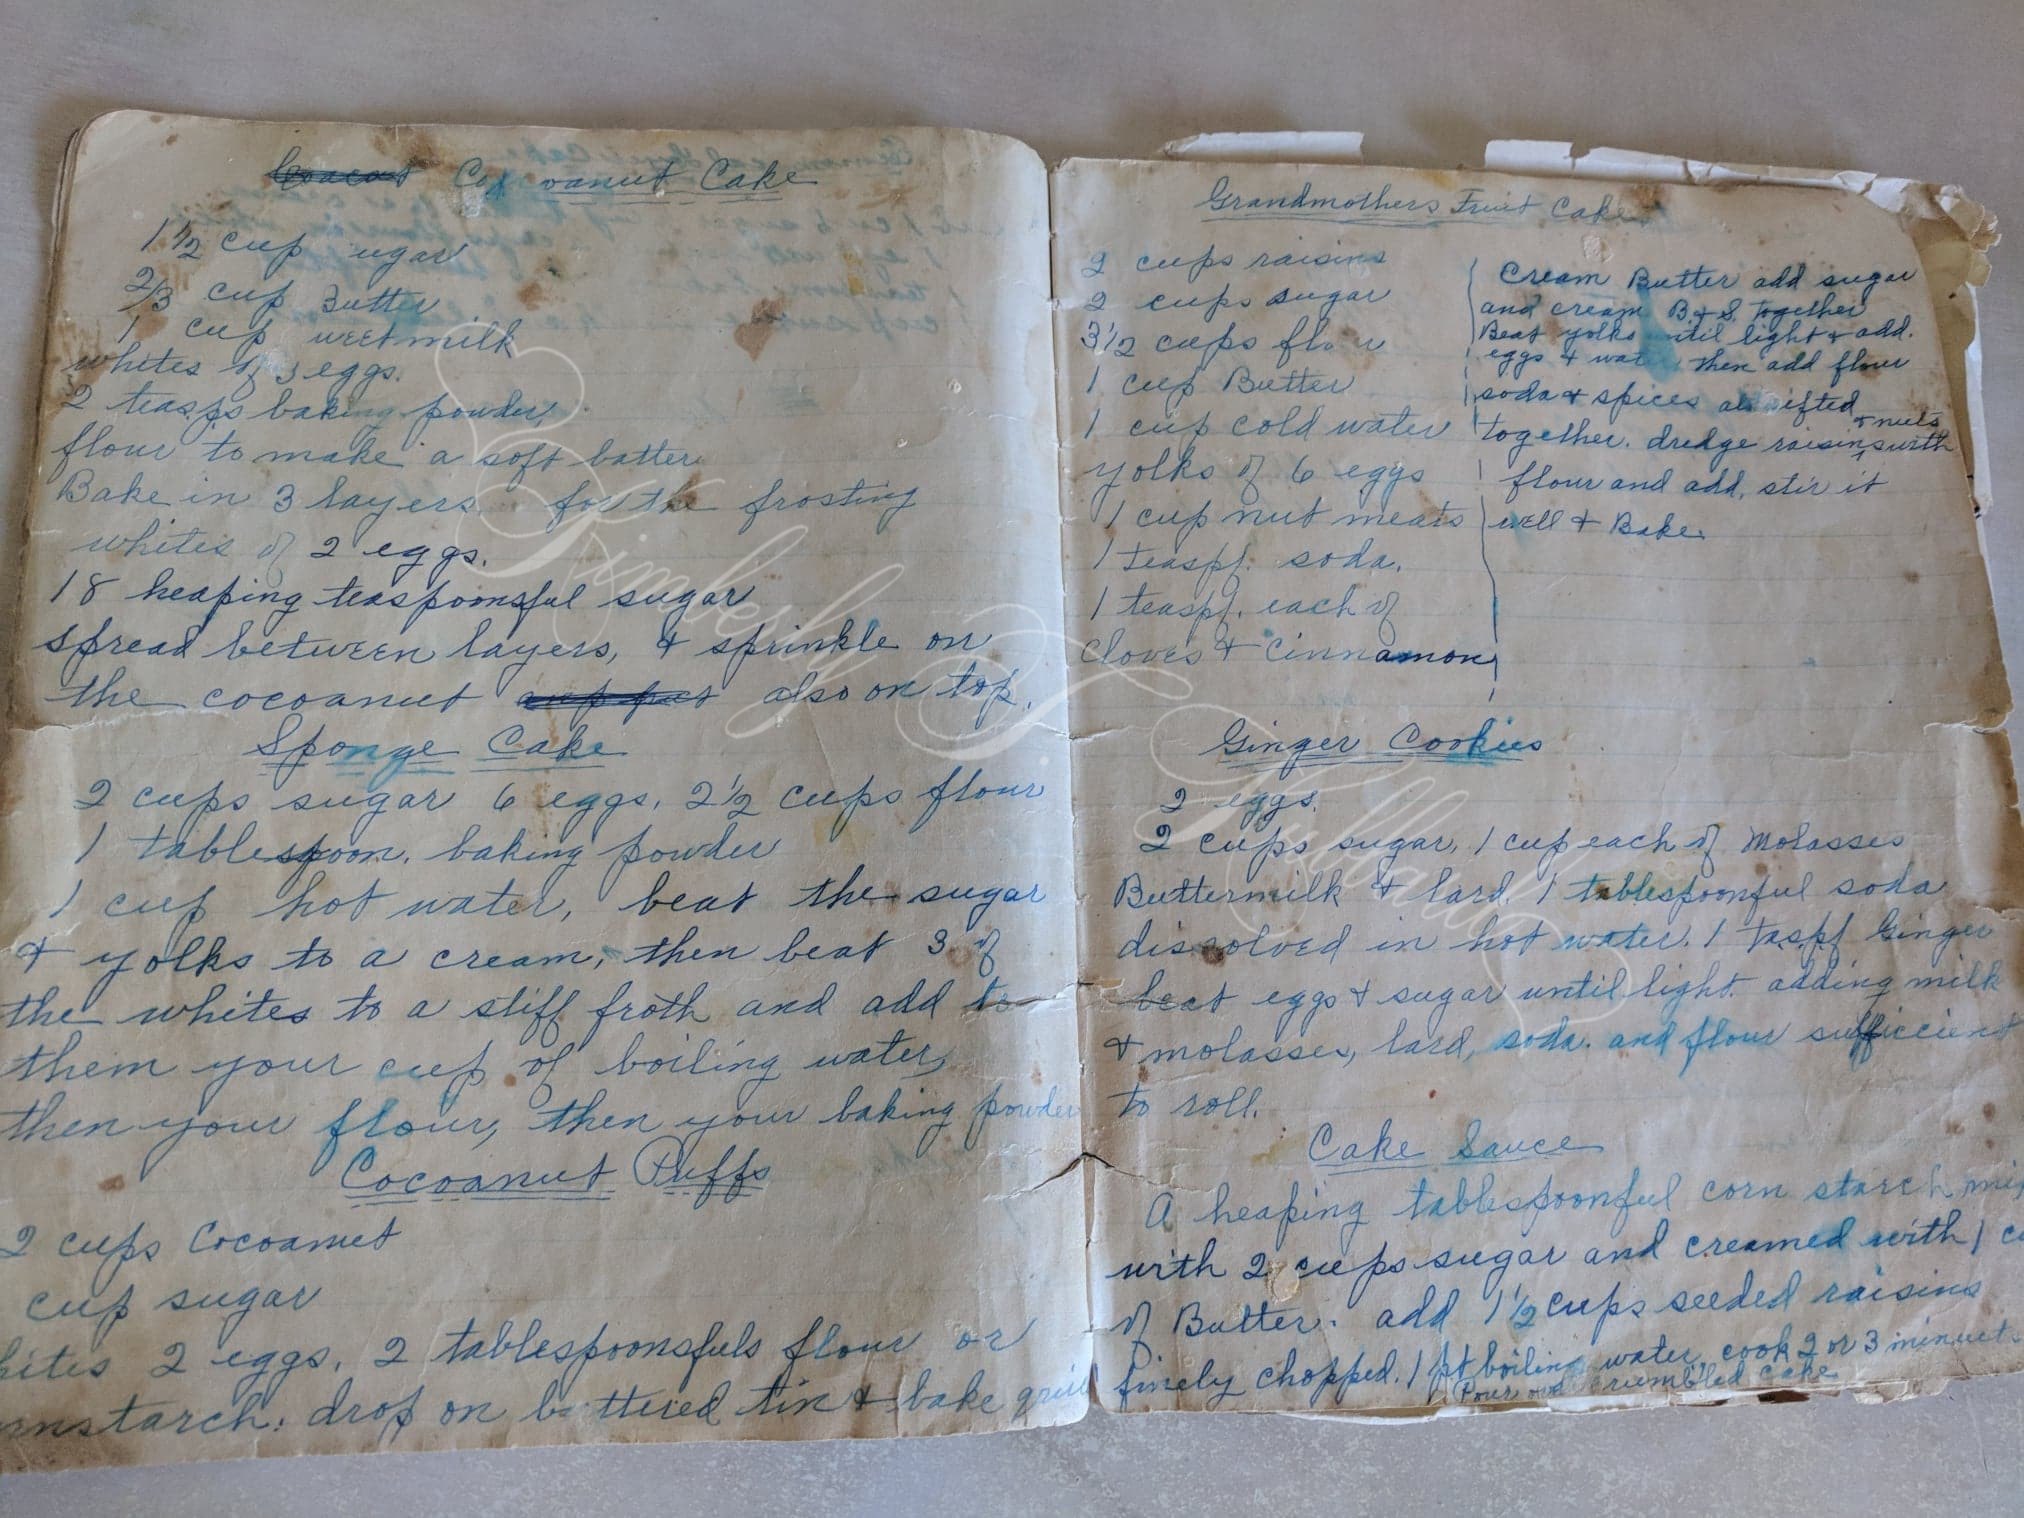 Cocoanut Cake
1 1/2 cup ugar
2/3 cup Butter
1 cup weetmilk
whites of 3 eggs.
2 teasps baking powder,
flour to make a soft batter
Bake in 3 layers. for the frosting
whites of 2 eggs.
18 heaping teaspoonsful sugar
spread between layers, & sprinkle on
the cocoanut also on top.
Sponge Cake
2 cups sugar 6 eggs, 2 1/2 cups flour
1 tablespoon. baking powder
1 cup hot water, beat the sugar
& yolks to a cream, then beat 3 of
the whites to a stiff froth and add to
them your cup of boiling water,
then your flour, then your baking powder
Cocoanut Puffs
2 cups Cocoanut
cup sugar
hites 2 eggs, 2 tablespoonsfuls flour or
rnstarch: drop on buttered tin & bake
Grandmothers Fruit Cake
2 cups raisins
2 cups sugar
3 1/2 cups flour
1 cup Butter
1 cup cold water
yolks of 6 eggs
1 cup nut meats
1 teaspf. soda.
1 teaspf. each of
Cloves & Cinnamon
Cream Butter add sugar
and cream B & S. together
Beat yolks until light & add.
eggs & water then add flour
soda & spices all sifted
together. dredge raisins & nuts with
flour and add, stir it
well & Bake.
Ginger Cookies
2 eggs.
2 cups sugar, 1 cup each of Molasses
Buttermilk & lard. 1 tablespoonful soda
dissolved in hot water. 1 taspf Ginger
beat eggs & sugar until light. adding milk
& molasses, lard, soda. and flour sufficient
to roll.
Cake Sauce
A heaping tablespoonful corn starch mix
with 2 cups sugar and creamed with 1 cu
of Butter. add 1 1/2 cups seeded raisins
finely chopped. 1 pt boiling water, cook 2 or 3 minuets
Pour over crumbled cake
Kimberly J. Hubbard